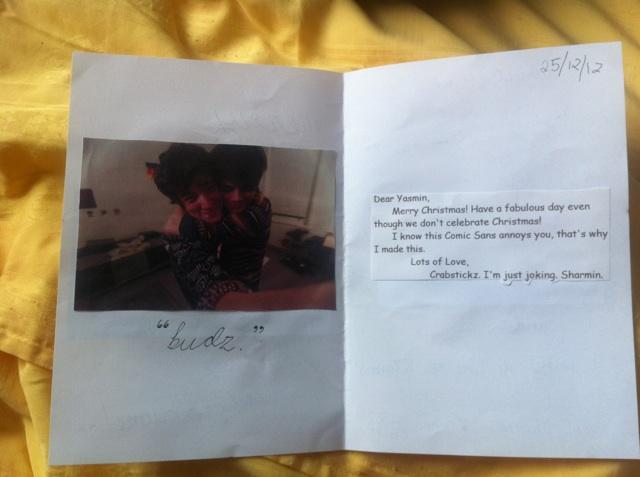 25/12/12
Dear Yasmin,
Merry Christmas! Have a fabulous day even
though we don't celebrate Christmas!
I know this Comic Sans annoys you, that's why
I made this.
Lots of Love,
Crabstickz. I'm just joking, Sharmin.
"budz."